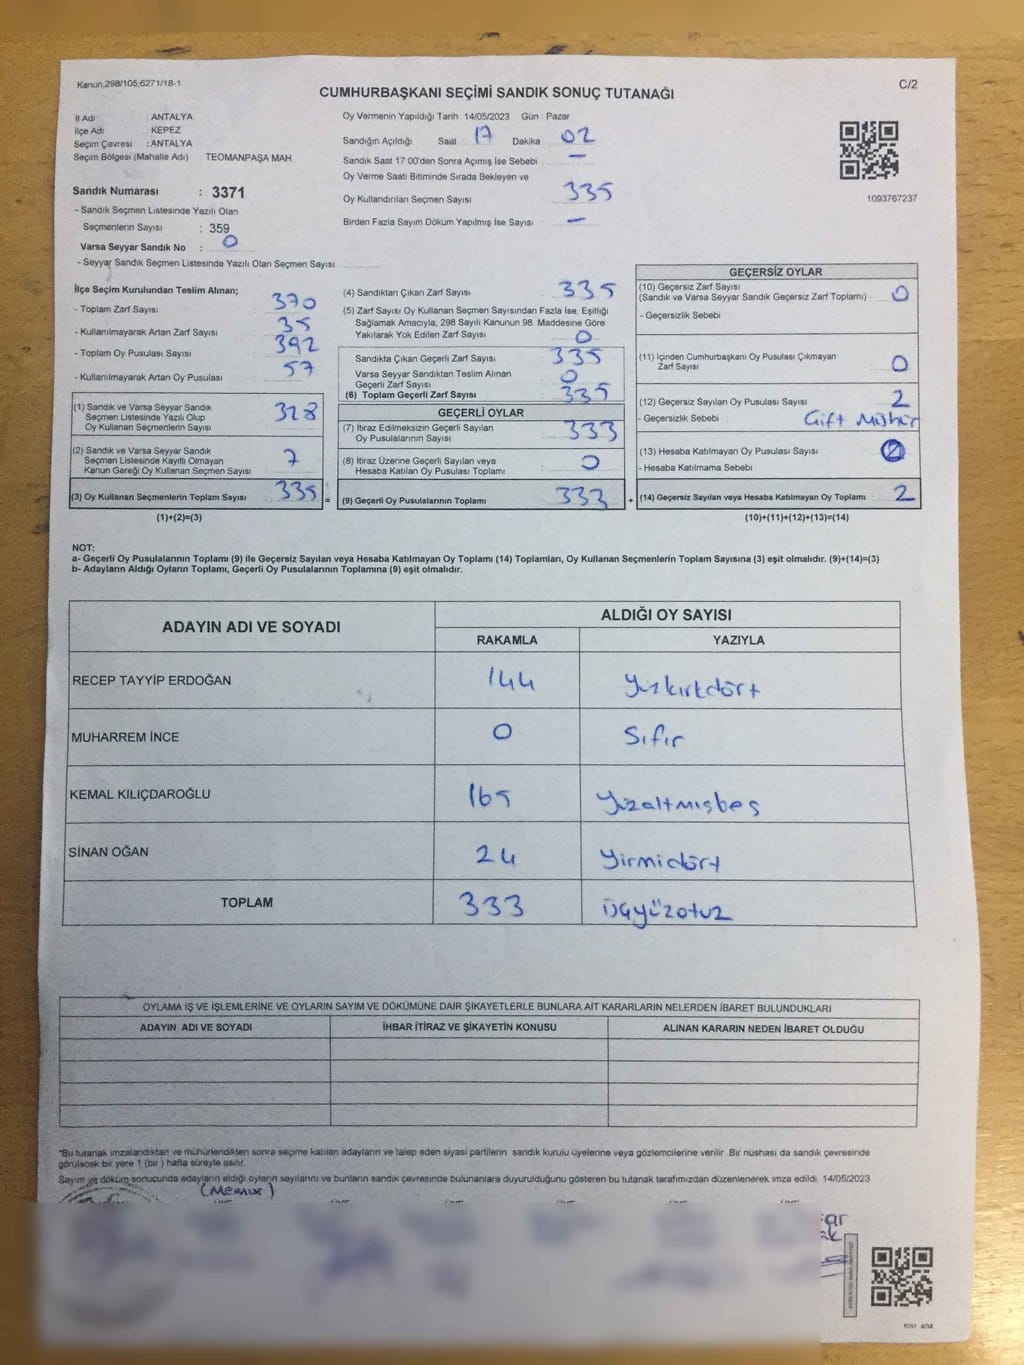 Kanun,298/105,6271/18-1
C/2
CUMHURBAŞKANI SEÇİMİ SANDIK SONUÇ TUTANAĞI
İl Adı ANTALYA
İlçe Adı KEPEZ
Seçim Çevresi : ANTALYA
Seçim Bölgesi (Mahalle Adı) TEOMANPAŞA MAH
Sandık Numarası : 3371
- Sandık Seçmen Listesinde Yazılı Olan
Seçmenlerin Sayısı : 359
Varsa Seyyar Sandık No : 0
- Seyyar Sandık Seçmen Listesinde Yazılı Olan Seçmen Sayısı
Oy Vermenin Yapıldığı Tarih 14/05/2023 Gün : Pazar
Sandığın Açıldığı Saat 17 Dakika 02
Sandık Saat 17:00'den Sonra Açımış İse Sebebi —
Oy Verme Saati Bitiminde Sırada Bekleyen ve
Oy Kullandırılan Seçmen Sayısı 335
Birden Fazla Sayım Döküm Yapılmış İse Sayısı —
1093767237
İlçe Seçim Kurulundan Teslim Alınan;
- Toplam Zarf Sayısı 370
- Kullanılmayarak Artan Zarf Sayısı 35
- Toplam Oy Pusulası Sayısı 392
- Kullanılmayarak Artan Oy Pusulası 57
(1) Sandık ve Varsa Seyyar Sandık
Seçmen Listesinde Yazılı Olup
Oy Kullanan Seçmenlerin Sayısı 328
(2) Sandık ve Varsa Seyyar Sandık
Seçmen Listesinde Kayıtlı Olmayan
Kanun Gereği Oy Kullanan Seçmen Sayısı 7
(3) Oy Kullanan Seçmenlerin Toplam Sayısı 335 =
(1)+(2)=(3)
(4) Sandıktan Çıkan Zarf Sayısı 335
(5) Zarf Sayısı Oy Kullanan Seçmen Sayısından Fazla İse, Eşitliği
Sağlamak Amacıyla, 298 Sayılı Kanunun 98. Maddesine Göre
Yakılarak Yok Edilen Zarf Sayısı 0
Sandıkta Çıkan Geçerli Zarf Sayısı 335
Varsa Seyyar Sandıktan Teslim Alınan
Geçerli Zarf Sayısı 0
(6) Toplam Geçerli Zarf Sayısı 335
GEÇERLİ OYLAR
(7) İtiraz Edilmeksizin Geçerli Sayılan
Oy Pusulalarının Sayısı 333
(8) İtiraz Üzerine Geçerli Sayılan veya
Hesaba Katılan Oy Pusulası Toplamı 0
(9) Geçerli Oy Pusulalarının Toplamı 333 +
GEÇERSİZ OYLAR
(10) Geçersiz Zarf Sayısı
(Sandık ve Varsa Seyyar Sandık Geçersiz Zarf Toplamı) : 0
- Geçersizlik Sebebi
(11) İçinden Cumhurbaşkanı Oy Pusulası Çıkmayan
Zarf Sayısı 0
(12) Geçersiz Sayılan Oy Pusulası Sayısı 2
- Geçersizlik Sebebi Çift Mühür
(13) Hesaba Katılmayan Oy Pusulası Sayısı 0
- Hesaba Katılmama Sebebi
(14) Geçersiz Sayılan veya Hesaba Katılmayan Oy Toplamı : 2
(10)+(11)+(12)+(13)=(14)
NOT:
a- Geçerli Oy Pusulalarının Toplamı (9) ile Geçersiz Sayılan veya Hesaba Katılmayan Oy Toplamı (14) Toplamları, Oy Kullanan Seçmenlerin Toplam Sayısına (3) eşit olmalıdır. (9)+(14)=(3)
b- Adayların Aldığı Oyların Toplamı, Geçerli Oy Pusulalarının Toplamına (9) eşit olmalıdır.
ADAYIN ADI VE SOYADI
ALDIĞI OY SAYISI
RAKAMLA YAZIYLA
RECEP TAYYİP ERDOĞAN 144 Yüzkırkdört
MUHARREM İNCE 0 Sıfır
KEMAL KILIÇDAROĞLU 165 Yüzaltmışbeş
SİNAN OĞAN 24 Yirmidört
TOPLAM 333 üçyüzotuz
OYLAMA İŞ VE İŞLEMLERİNE VE OYLARIN SAYIM VE DÖKÜMÜNE DAİR ŞİKAYETLERLE BUNLARA AİT KARARLARIN NELERDEN İBARET BULUNDUKLARI
ADAYIN ADI VE SOYADI İHBAR İTİRAZ VE ŞİKAYETİN KONUSU ALINAN KARARIN NEDEN İBARET OLDUĞU
*Bu tutanak imzalandıktan ve mühürlendikten sonra seçime katılan adayların ve talep eden siyasi partilerin sandık kurulu üyelerine veya gözlemcilerine verilir. Bir nüshası da sandık çevresinde
görülecek bir yere 1 (bir) hafta süreyle asılır.
Sayım ve döküm sonucunda adayların aldığı oyların sayılarını ve bunların sandık çevresinde bulunanlara duyurulduğunu gösteren bu tutanak tarafımızdan düzenlenerek imza edildi. 14/05/2023
(Memur)